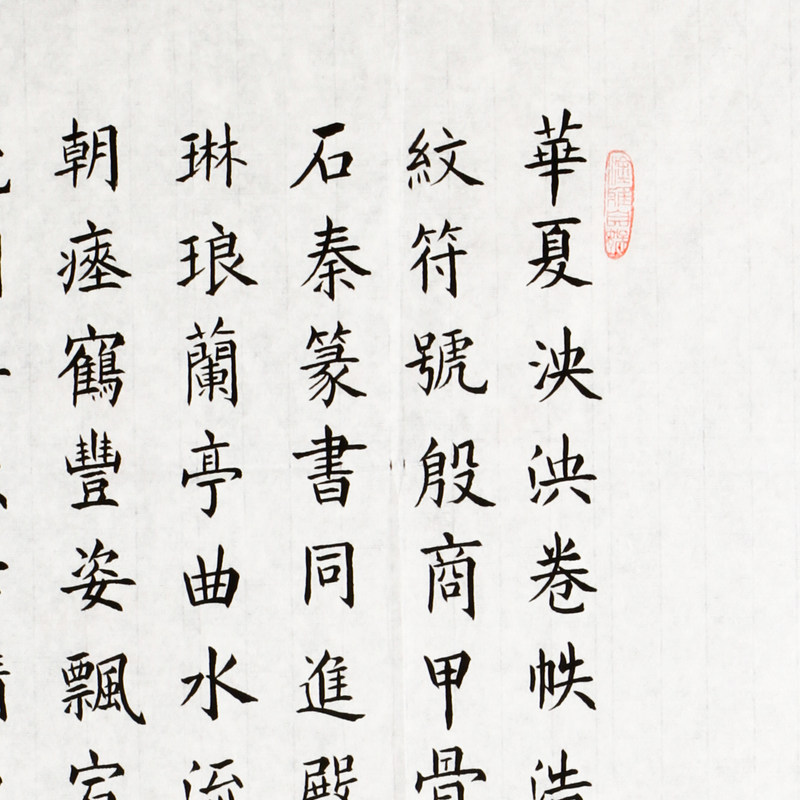 華夏泱泱卷帙浩
紋符號殷商甲骨
石秦篆書同進殿
琳琅蘭亭曲水流
朝瘞鶴豐姿飄宕